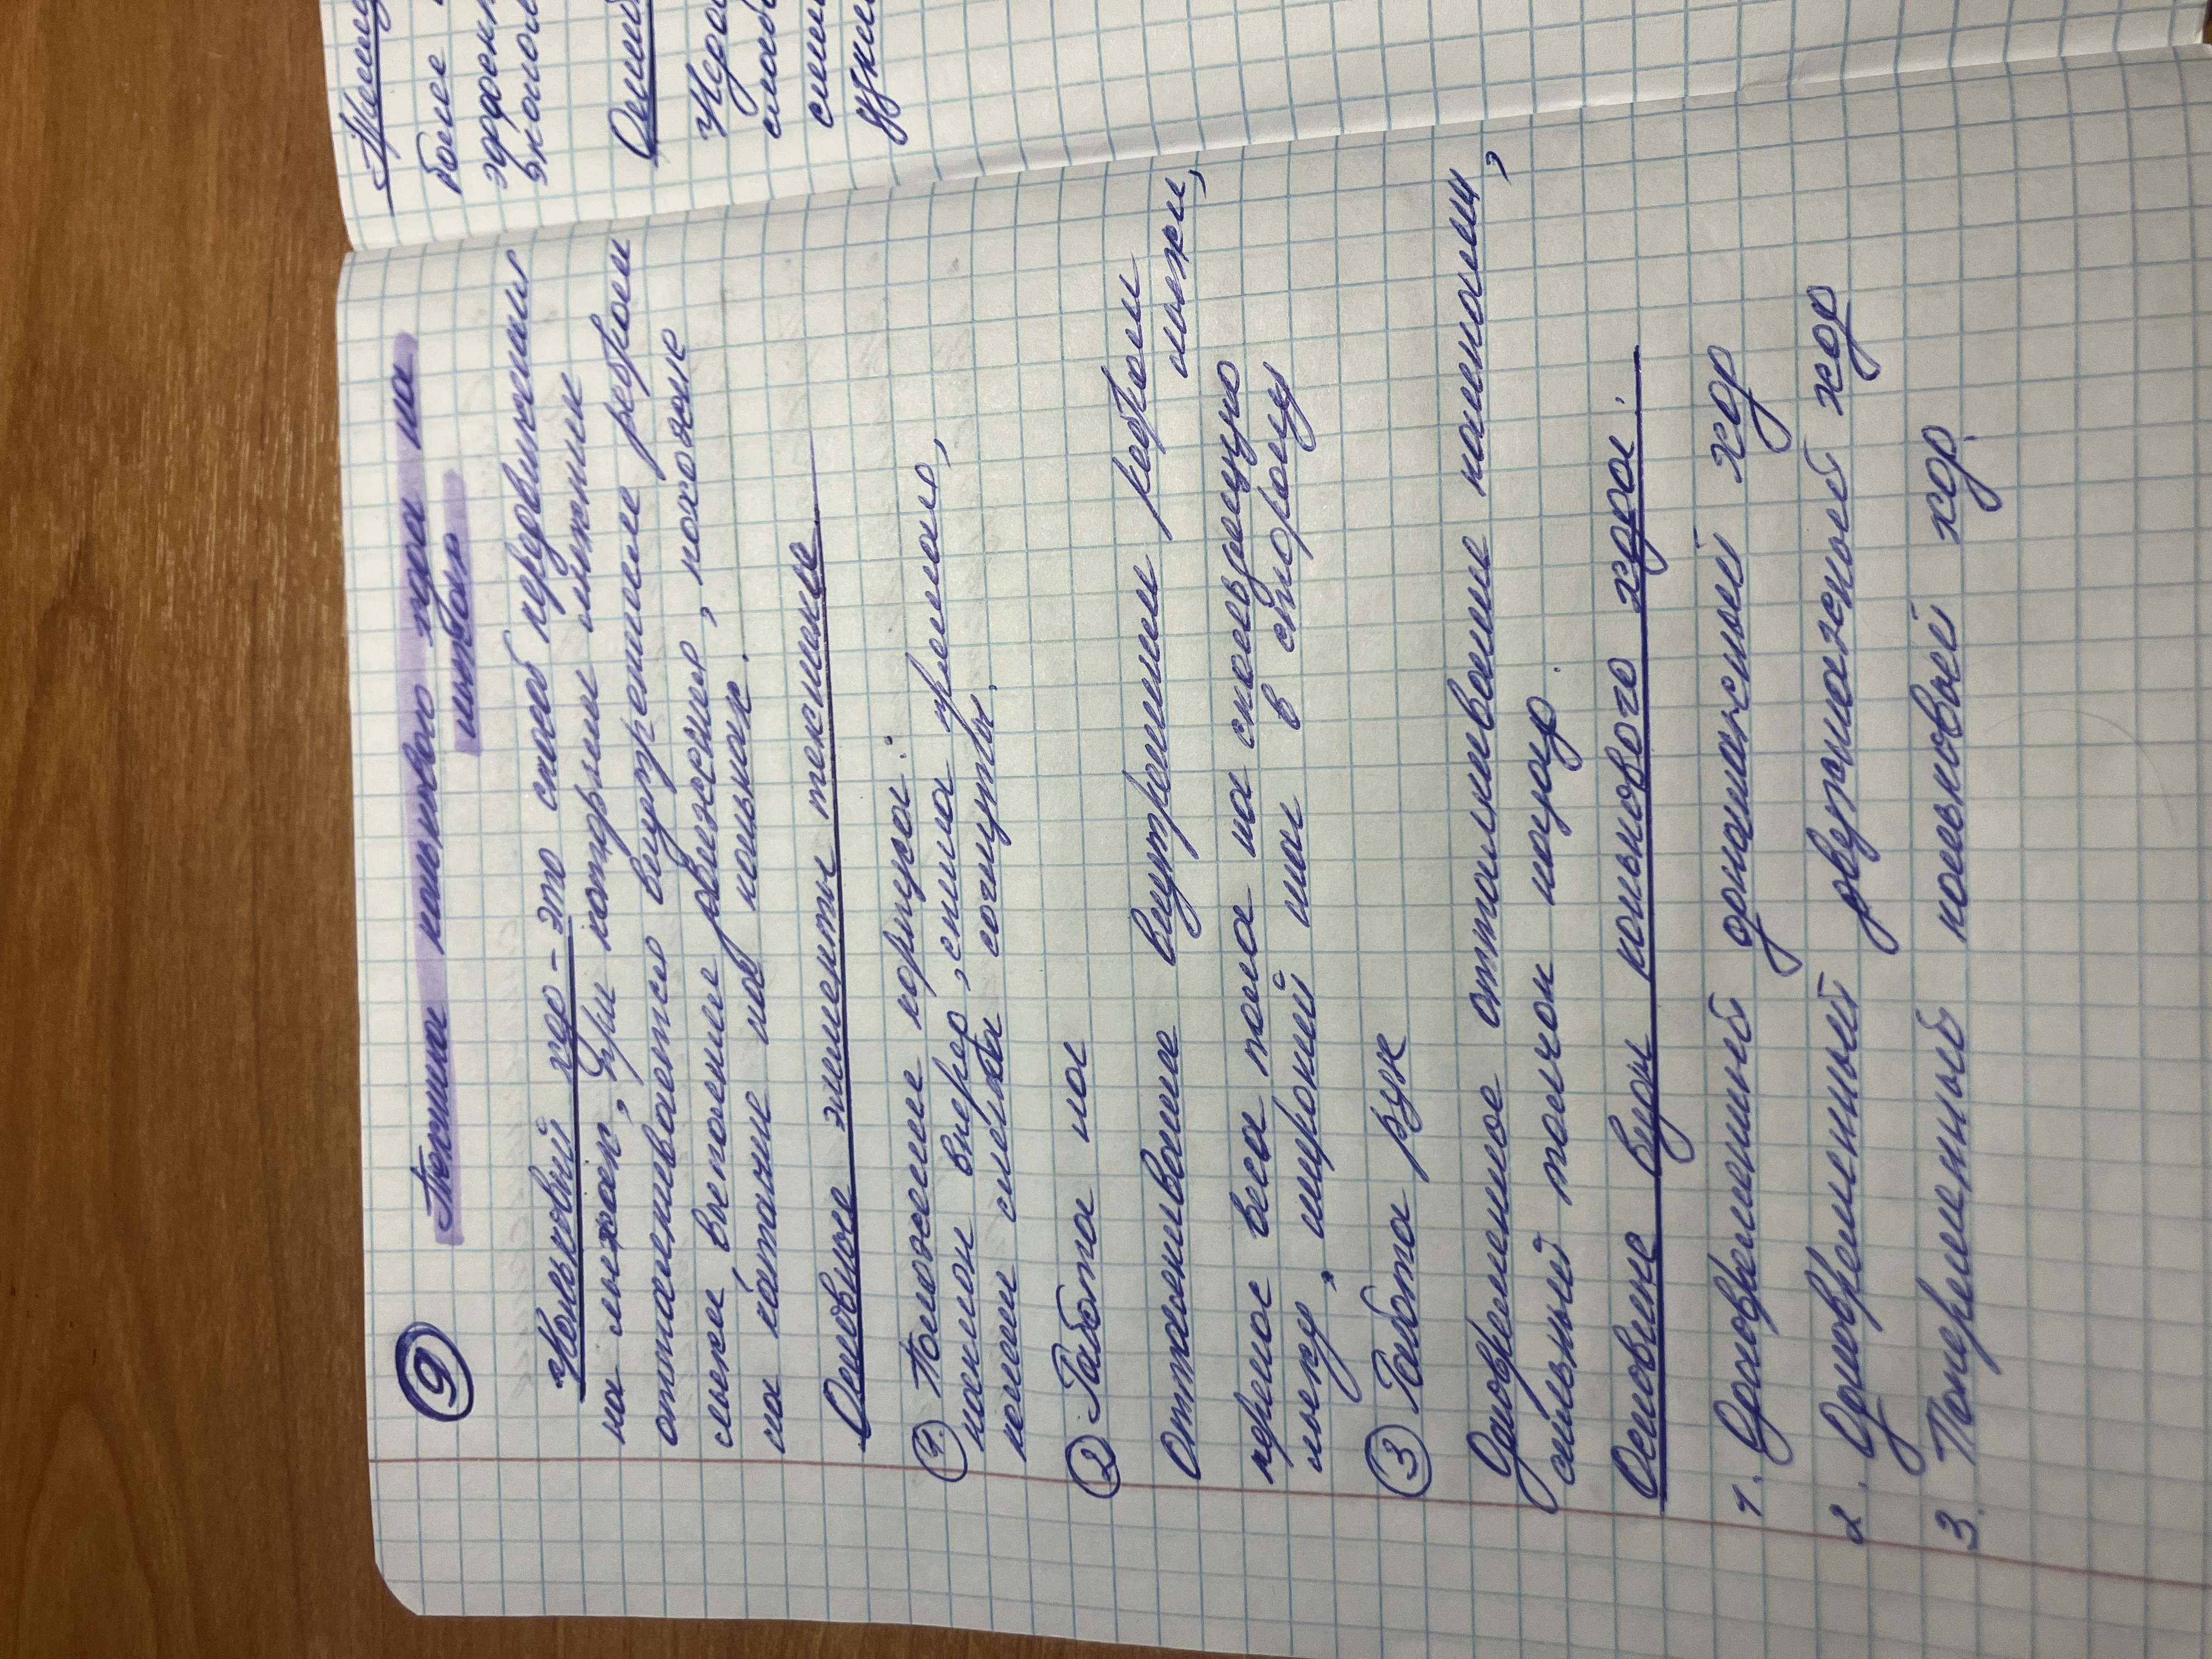 9
Техника конькового хода на
лыжах
Коньковый ход - это способ передвижения
на лыжах, при котором лыжник
отталкивается внутренним ребром
лыжи вперед движение, похожие
на катание на коньках.
Основные элементы техники
1. Положение корпуса:
наклон вперед, спина прямая,
колени слегка согнуты.
2. Работа ног
Отталкивание внутренним ребром лыжи,
перенос веса тела на скользящую
лыжу, широкий шаг в сторону
3 Работа рук
Одновременное отталкивание палками,
сильный толчок назад.
Основные виды конькового хода:
1. Одновременный одношажный ход
2. Одновременный двухшажный ход
3. Попеременный коньковый ход.
более
Ошиб